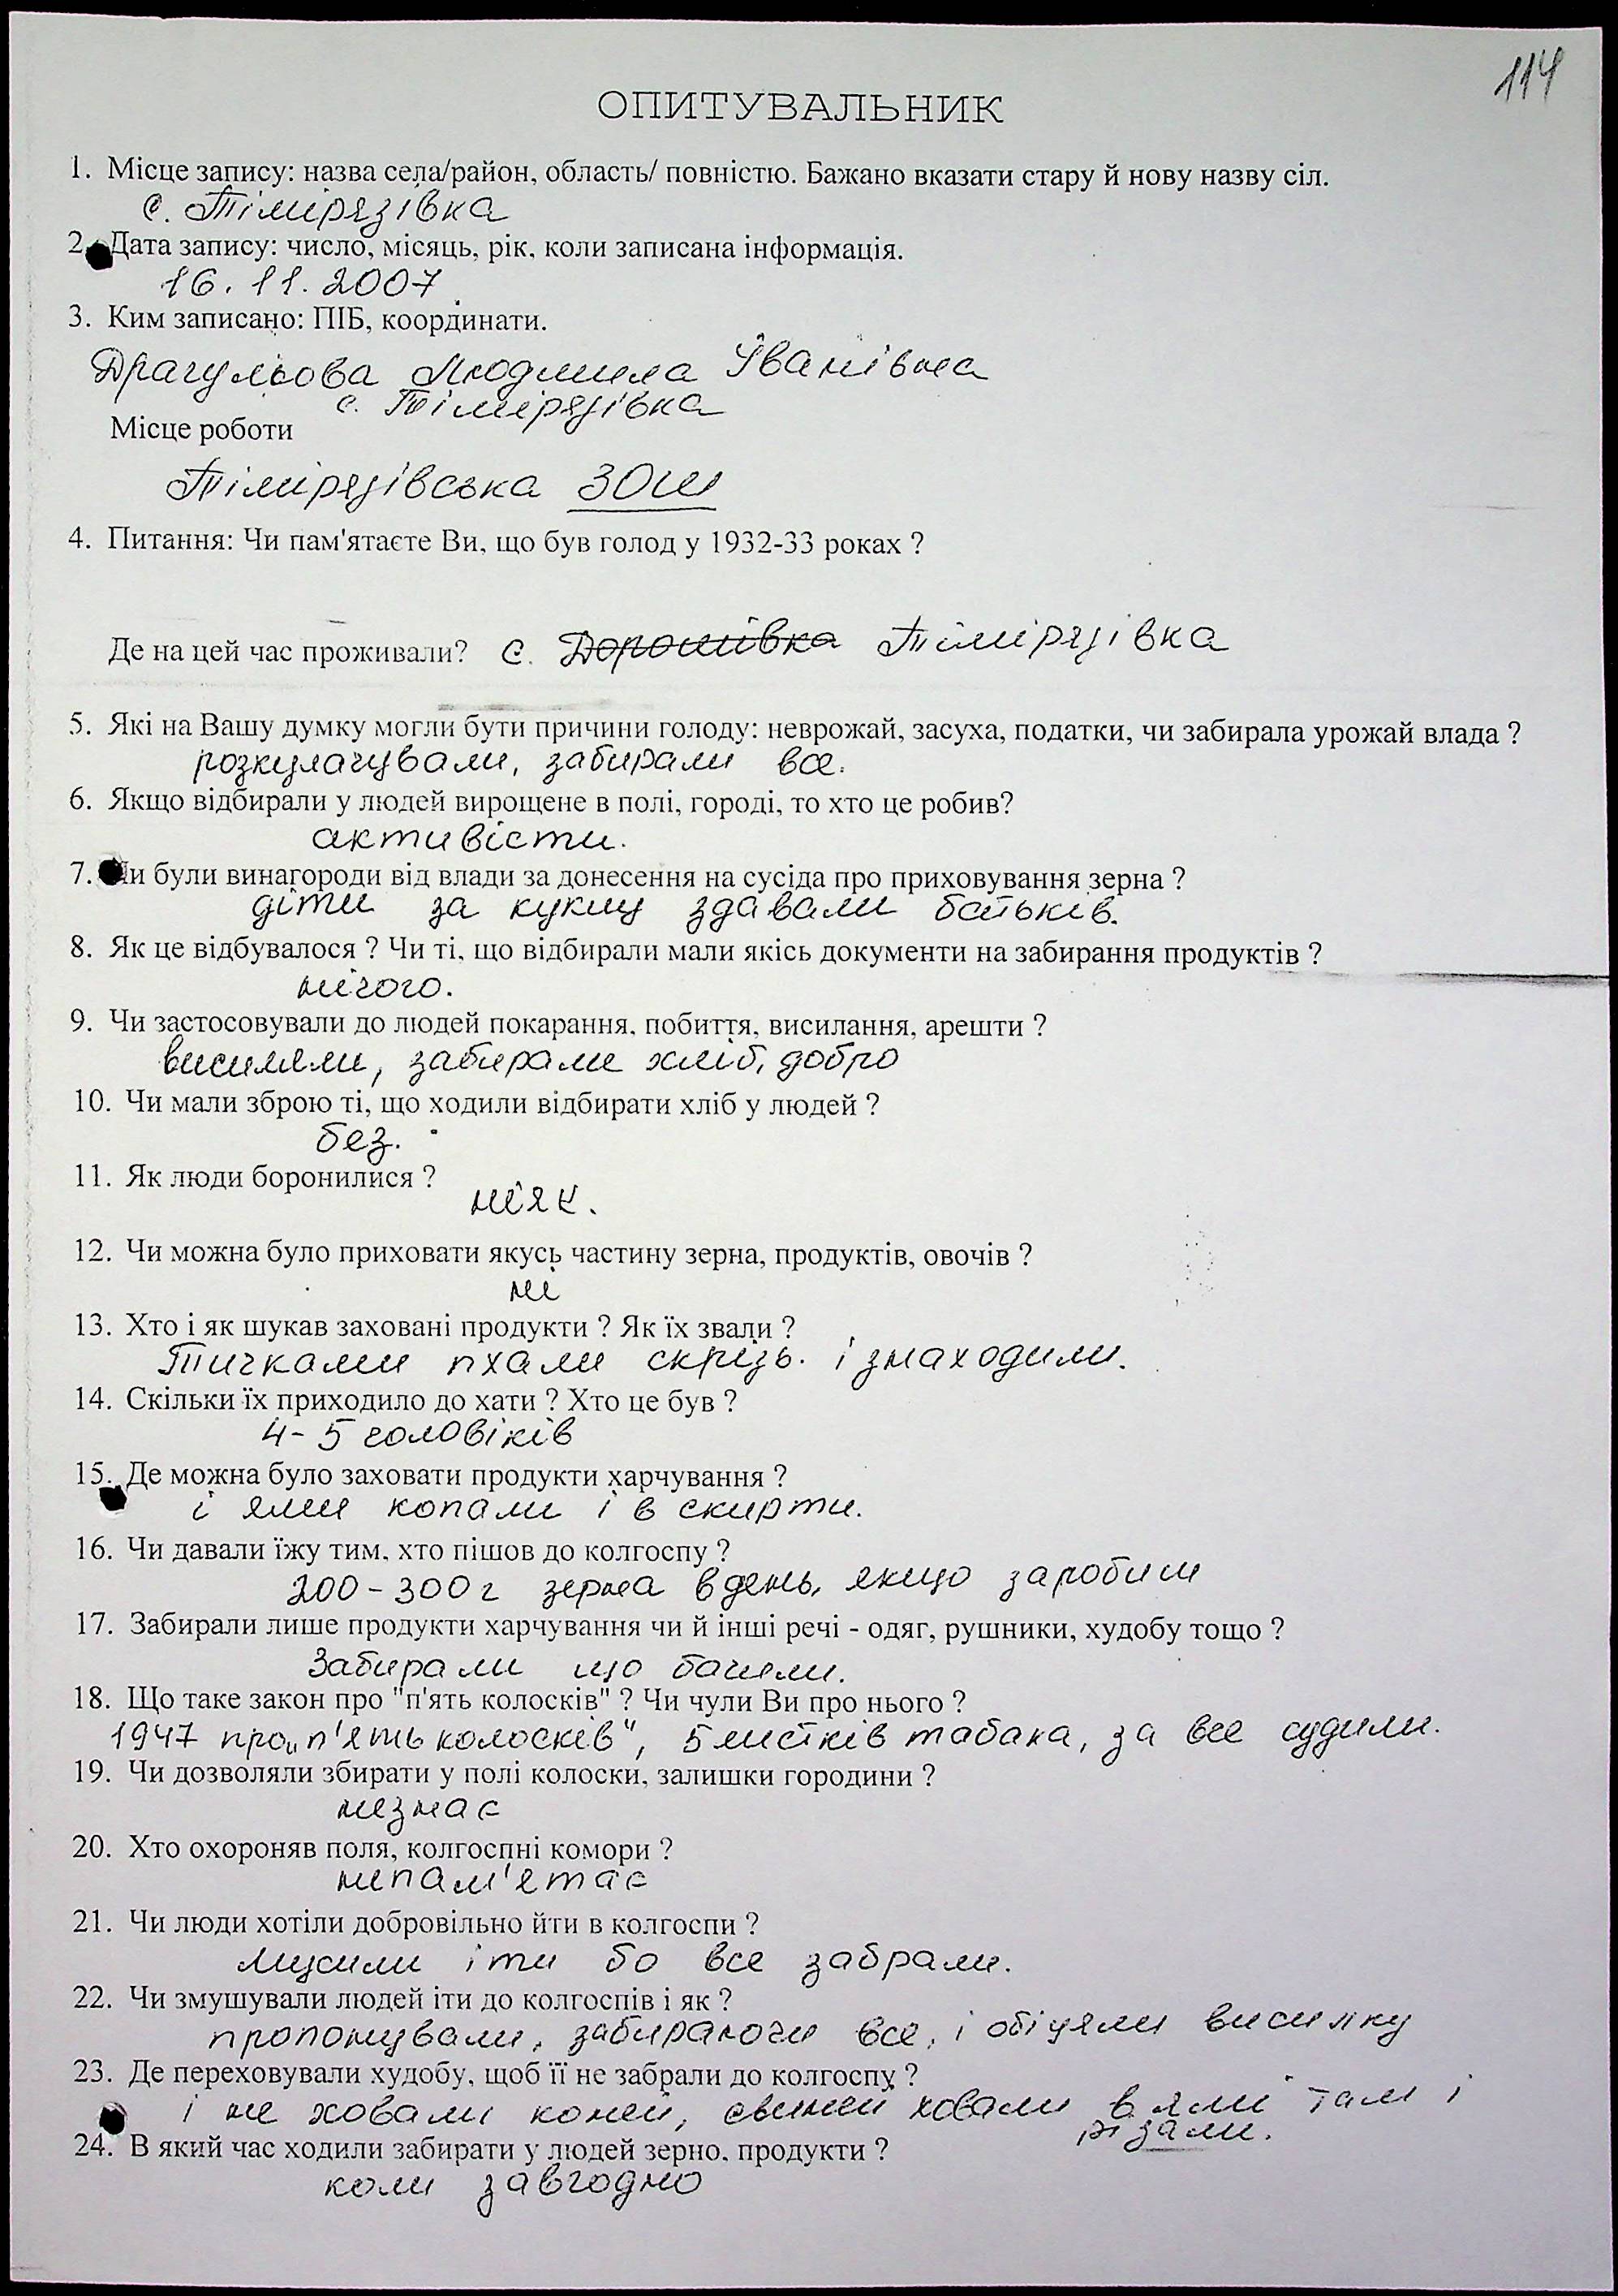 114
ОПИТУВАЛЬНИК
1. Місце запису: назва села/район, область/ повністю. Бажано вказати стару й нову назву сіл.
с. Тімірязівка
2. Дата запису: число, місяць, рік, коли записана інформація.
16.11.2007
3. Ким записано: ПІБ, координати.
Драгульова Людмила Іванівна
с. Тімірязівка
Місце роботи
Тімірязівська ЗОШ
4. Питання: Чи пам'ятаєте Ви, що був голод у 1932-33 роках ?
Де на цей час проживали? с. Дорошівка Тімірязівка
5. Які на Вашу думку могли бути причини голоду: неврожай, засуха, податки, чи забирала урожай влада ?
розкулачували, забирали все.
6. Якщо відбирали у людей вирощене в полі, городі, то хто це робив?
активісти.
7. Чи були винагороди від влади за донесення на сусіда про приховування зерна ?
діти за здавали батьків.
8. Як це відбувалося ? Чи ті, що відбирали мали якісь документи на забирання продуктів ?
нічого.
9. Чи застосовували до людей покарання, побиття, висилання, арешти ?
висиляли, забирали хліб, добро
10. Чи мали зброю ті, що ходили відбирати хліб у людей ?
без.
11. Як люди боронилися ?
ніяк.
12. Чи можна було приховати якусь частину зерна, продуктів, овочів ?
ні
13. Хто і як шукав заховані продукти ? Як їх звали ?
Тичками пхали скрізь. і знаходили.
14. Скільки їх приходило до хати ? Хто це був ?
4-5 чоловіків
15. Де можна було заховати продукти харчування ?
і ями копали і в скирти.
16. Чи давали їжу тим, хто пішов до колгоспу ?
200-300 г зерна в день, якщо заробиш
17. Забирали лише продукти харчування чи й інші речі - одяг, рушники, худобу тощо ?
Забирали що бачили.
18. Що таке закон про "п'ять колосків" ? Чи чули Ви про нього ?
1947 про „п'ять колосків", 5 листків табака, за все судили.
19. Чи дозволяли збирати у полі колоски, залишки городини ?
незнає
20. Хто охороняв поля, колгоспні комори ?
непам'ятає
21. Чи люди хотіли добровільно йти в колгоспи ?
Мусили іти бо все забрали.
22. Чи змушували людей іти до колгоспів і як ?
пропонували, забираючи все, і обіцяли висилку
23. Де переховували худобу, щоб її не забрали до колгоспу ?
і не ховали коней, свиней ховали в ями там і
різали.
24. В який час ходили забирати у людей зерно, продукти ?
коли завгодно